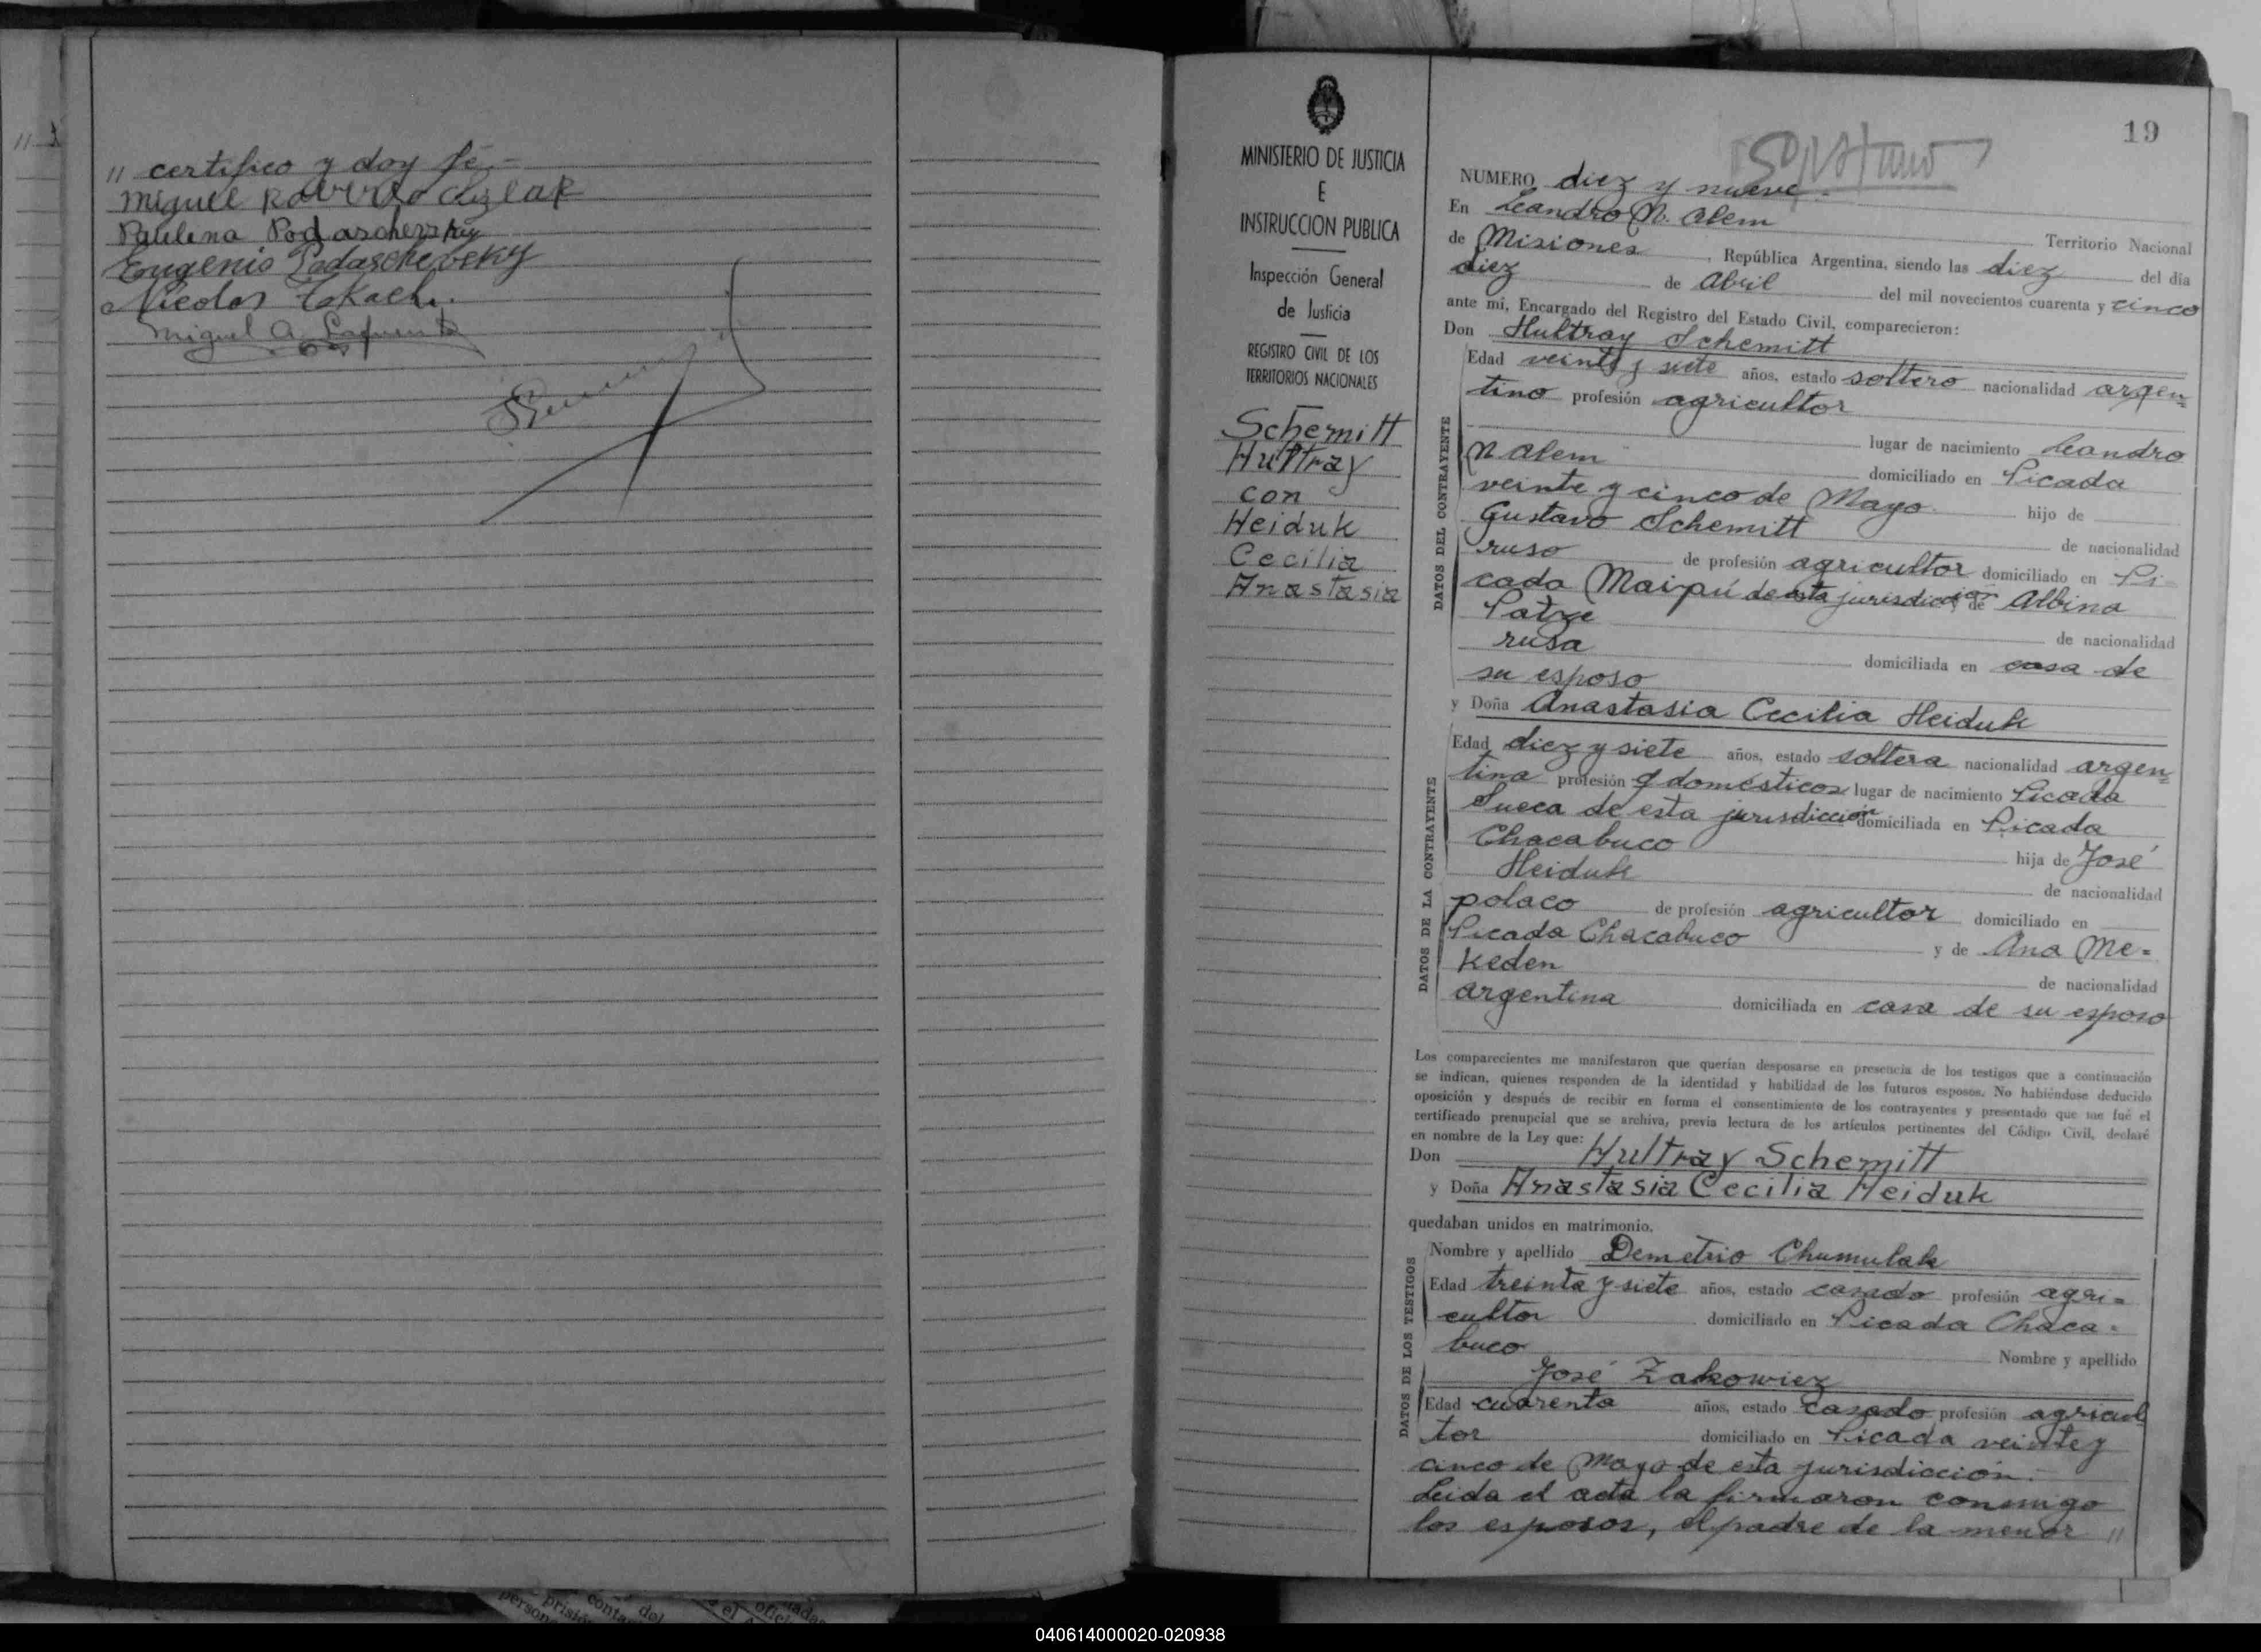 " certifico y doy fé –
Miguel
Paulina Podaschevsky
Eugenio Podaschevsky
Nicolas Tkach.
Miguel A.
19
MINISTERIO DE JUSTICIA
E
INSTRUCCION PUBLICA
Inspección General
de Justicia
REGISTRO CIVIL DE LOS
TERRITORIOS NACIONALES
Schemitt
Hultray
con
Heiduk
Cecilia
Anastasia
NUMERO diez y nueve.-
En Leandro N. Alem Territorio Nacional
de Misiones, República Argentina, siendo las diez del día
diez de Abril del mil novecientos cuarenta y cinco
ante mí, Encargado del Registro del Estado Civil, comparecieron:
Don Hultray Schemitt
DATOS DEL CONTRAYENTE
Edad veinte y siete años, estado soltero nacionalidad argen=
tino profesión agricultor
lugar de nacimiento Leandro
N Alem domiciliado en Picada
veinte y cinco de Mayo hijo de
Gustavo Schemitt de nacionalidad
ruso de profesión agricultor domiciliado en Pi=
cada Maipú de esta jurisdicción y de Albina
Patze de nacionalidad
rusa domiciliada en casa de
su esposo
y Doña Anastasia Cecilia Heiduk
DATOS DE LA CONTRAYENTE
Edad diez y siete años, estado soltera nacionalidad argen=
tina profesión q domésticos lugar de nacimiento Picada
Sueca de esta jurisdicción domiciliada en Picada
Chacabuco hija de José
Heiduk de nacionalidad
polaco de profesión agricultor domiciliado en
Picada Chacabuco y de Ana Me=
keden de nacionalidad
argentina domiciliada en casa de su esposo
Los comparecientes me manifestaron que querían desposarse en presencia de los testigos que a continuación
se indican, quienes responden de la identidad y habilidad de los futuros esposos. No habiéndose deducido
oposición y después de recibir en forma el consentimiento de los contrayentes y presentado que me fué el
certificado prenupcial que se archiva, previa lectura de los artículos pertinentes del Código Civil, declaré
en nombre de la Ley que:
Don Hultray Schemitt
y Doña Anastasia Cecilia Heiduk
quedaban unidos en matrimonio.
DATOS DE LOS TESTIGOS
Nombre y apellido Demetrio Chumulak
Edad treinta y siete años, estado casado profesión agri=
cultor domiciliado en Picada Chaca=
buco Nombre y apellido
José Zakowiez
Edad cuarenta años, estado casado profesión agricul
tor domiciliado en Picada veinte y
cinco de Mayo de esta jurisdicción.
Leida el acta la firmaron conmigo
los esposos, el padre de la menor "
040614000020-020938